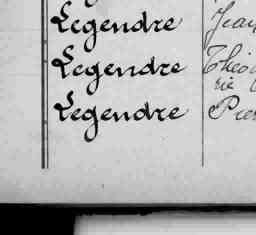 Legendre Jean
Legendre Théo
rie
Legendre Pier